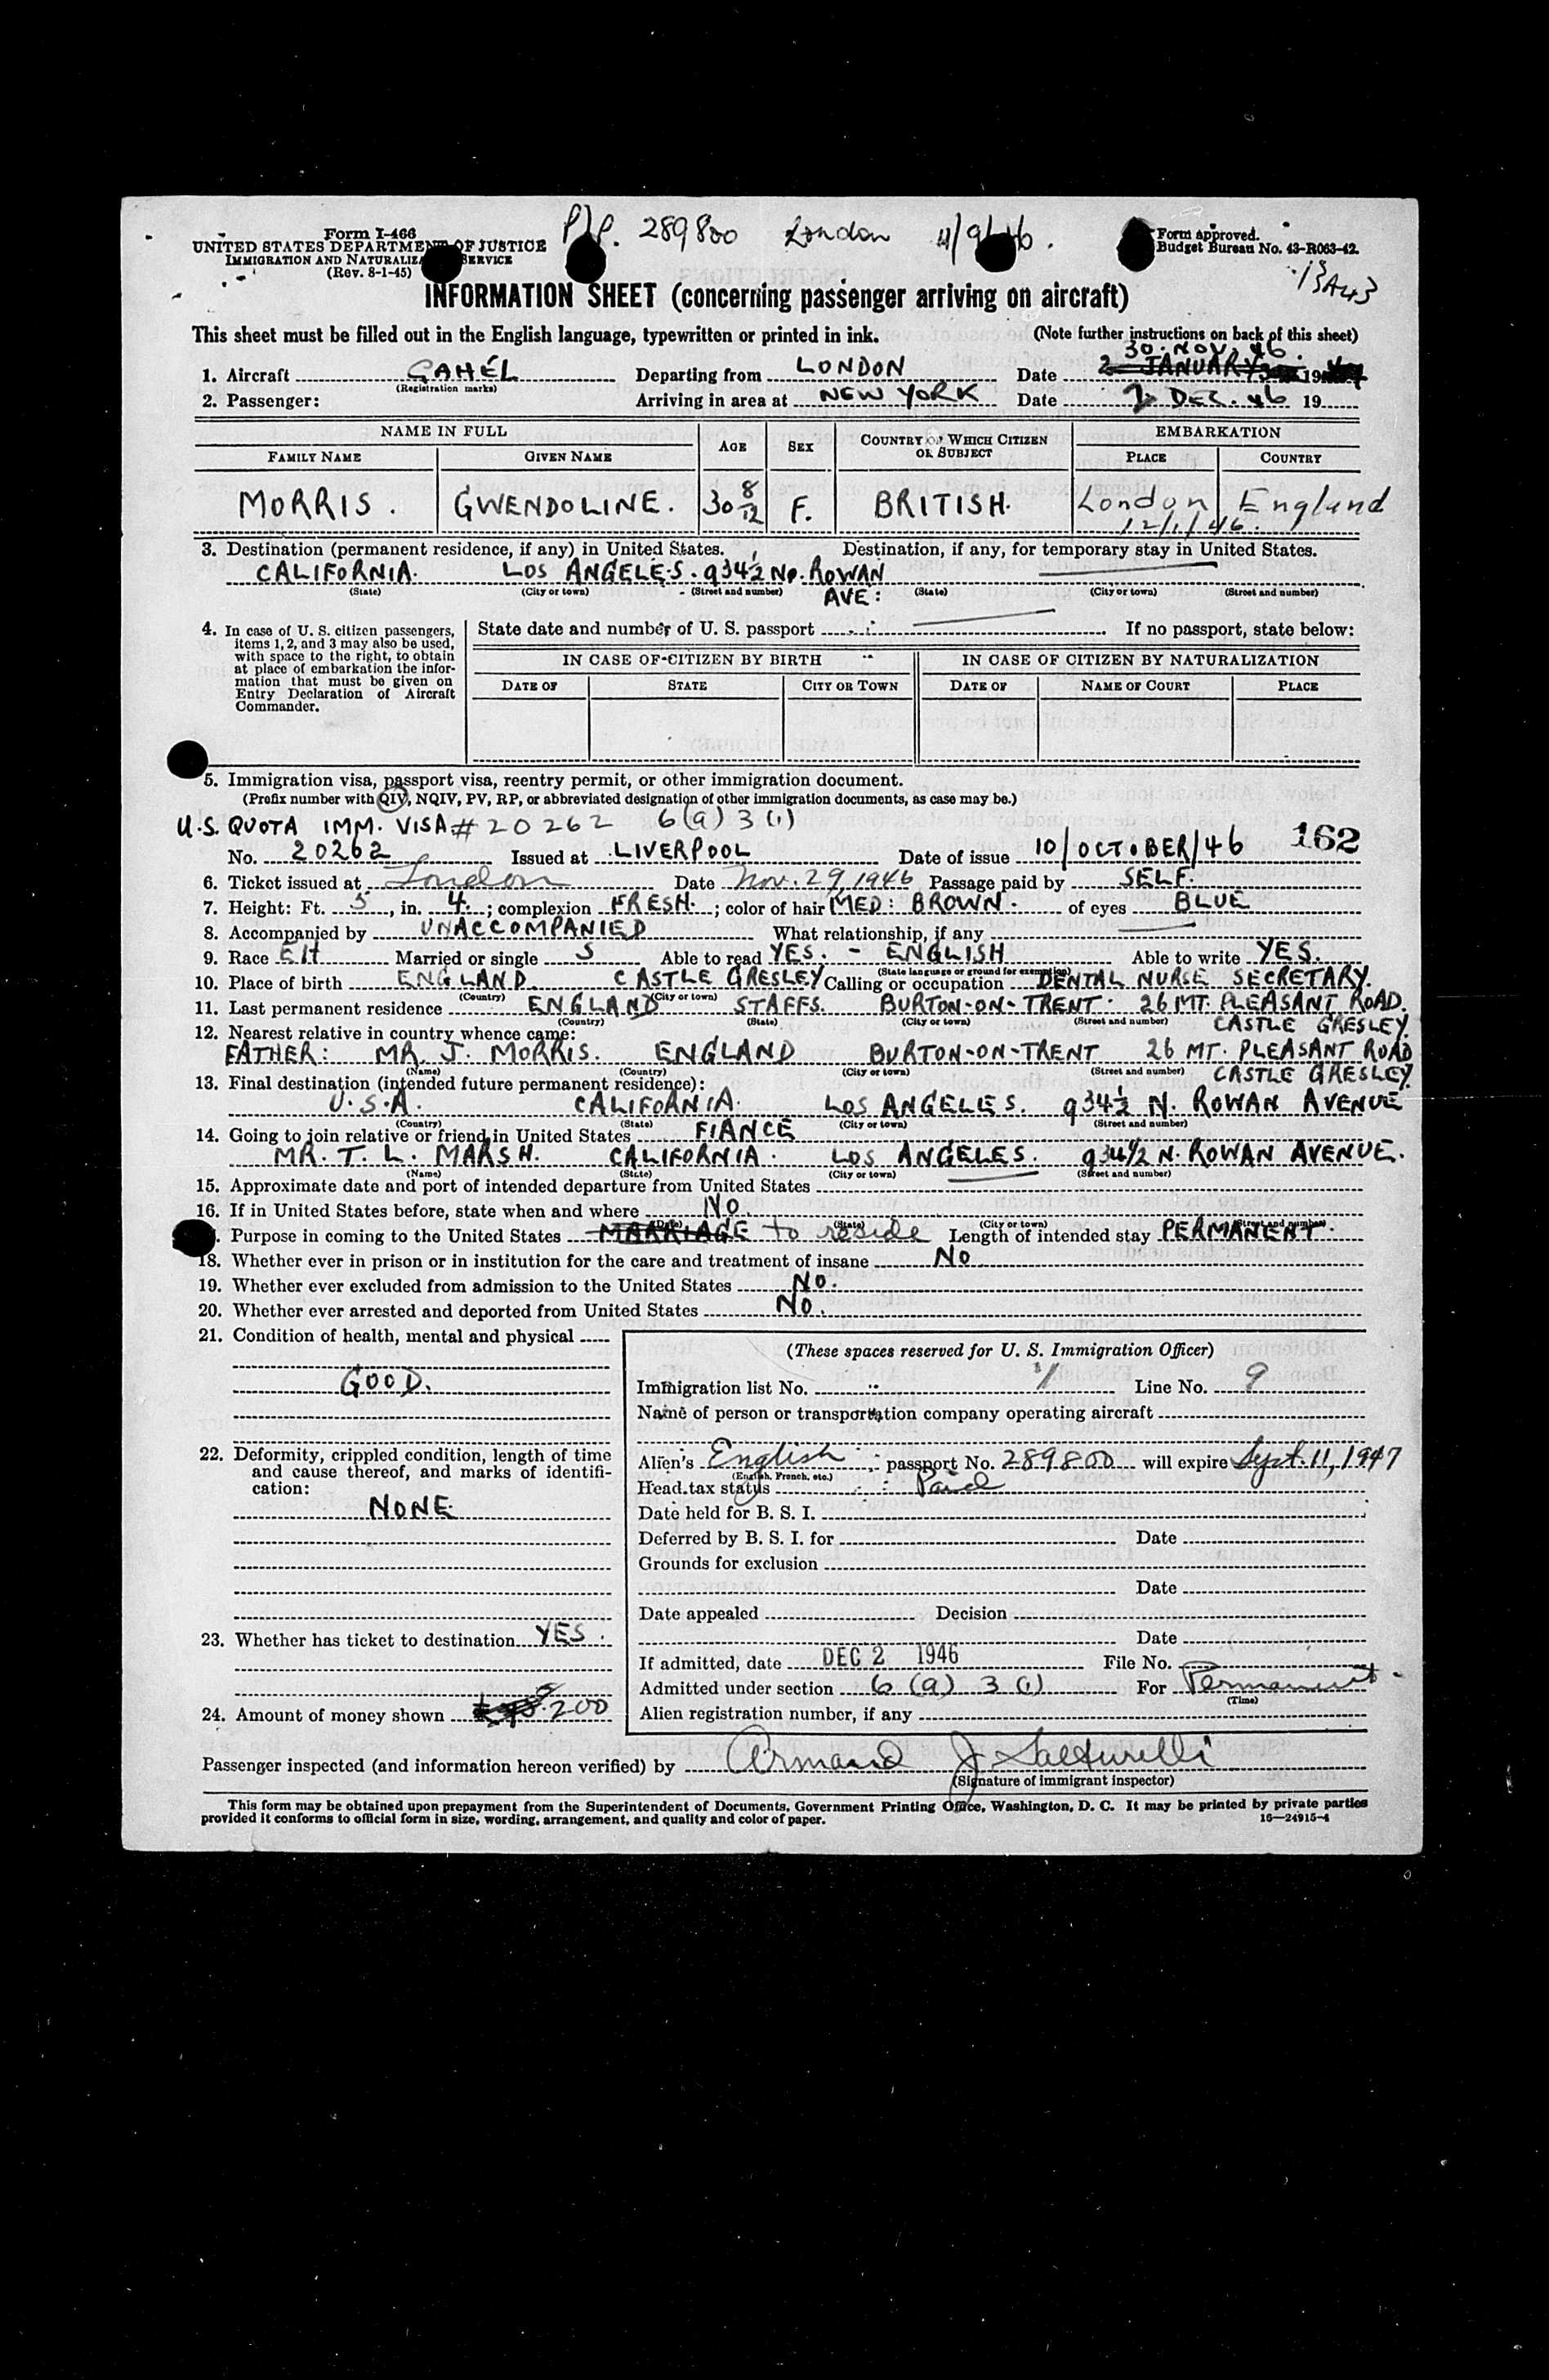 P/P. 289800 London 11/9/46.
Form I-466
UNITED STATES DEPARTMENT OF JUSTICE
IMMIGRATION AND NATURALIZATION SERVICE
(Rev. 8-1-45)
Form approved.
Budget Bureau No. 43-R063-42.
INFORMATION SHEET (concerning passenger arriving on aircraft)
This sheet must be filled out in the English language, typewritten or printed in ink. (Note further instructions on back of this sheet)
30. NOV. 46.
1. Aircraft GAHEL Departing from LONDON Date 2 JANUARY 19
(Registration marks)
2. Passenger: Arriving in area at NEW YORK Date 2 DEC. 46 19
NAME IN FULL AGE SEX COUNTRY OF WHICH CITIZEN OR SUBJECT EMBARKATION
FAMILY NAME GIVEN NAME PLACE COUNTRY
MORRIS. GWENDOLINE. 30 8/12 F. BRITISH. London England
12/1/46.
3. Destination (permanent residence, if any) in United States. Destination, if any, for temporary stay in United States.
CALIFORNIA. LOS ANGELES. 934½ No. ROWAN
AVE:
(State) (City or town) (Street and number) (State) (City or town) (Street and number)
4. In case of U. S. citizen passengers, items 1, 2, and 3 may also be used, with space to the right, to obtain at place of embarkation the information that must be given on Entry Declaration of Aircraft Commander.
State date and number of U. S. passport If no passport, state below:
IN CASE OF CITIZEN BY BIRTH IN CASE OF CITIZEN BY NATURALIZATION
DATE OF STATE CITY OR TOWN DATE OF NAME OF COURT PLACE
5. Immigration visa, passport visa, reentry permit, or other immigration document.
(Prefix number with QIV, NQIV, PV, RP, or abbreviated designation of other immigration documents, as case may be.)
U.S. QUOTA IMM. VISA # 20262 6(a) 3 (1)
162
No. 20262 Issued at LIVERPOOL Date of issue 10/OCTOBER/46
6. Ticket issued at London Date Nov. 29, 1946 Passage paid by SELF.
7. Height: Ft. 5, in. 4.; complexion FRESH.; color of hair MED: BROWN. of eyes BLUE
8. Accompanied by UNACCOMPANIED What relationship, if any
9. Race EH Married or single S Able to read YES. - ENGLISH Able to write YES.
(State language or ground for exemption)
10. Place of birth ENGLAND. CASTLE GRESLEY Calling or occupation DENTAL NURSE SECRETARY.
(Country) (City or town)
11. Last permanent residence ENGLAND STAFFS. BURTON-ON-TRENT. 26 MT. PLEASANT ROAD.
(Country) (State) (City or town) (Street and number) CASTLE GRESLEY.
12. Nearest relative in country whence came:
FATHER: MR. J. MORRIS. ENGLAND BURTON-ON-TRENT 26 MT. PLEASANT ROAD
(Name) (Country) (City or town) (Street and number) CASTLE GRESLEY.
13. Final destination (intended future permanent residence):
U.S.A. CALIFORNIA. LOS ANGELES. 934½ N. ROWAN AVENUE
(Country) (State) (City or town) (Street and number)
14. Going to join relative or friend in United States FIANCE
MR. T. L. MARSH. CALIFORNIA. LOS ANGELES. 934½ N. ROWAN AVENUE.
(Name) (State) (City or town) (Street and number)
15. Approximate date and port of intended departure from United States
16. If in United States before, state when and where NO.
(Date) (State) (City or town) (Street and number)
Purpose in coming to the United States MARRIAGE to reside Length of intended stay PERMANENT.
18. Whether ever in prison or in institution for the care and treatment of insane NO
19. Whether ever excluded from admission to the United States NO.
20. Whether ever arrested and deported from United States NO.
21. Condition of health, mental and physical
GOOD.
22. Deformity, crippled condition, length of time and cause thereof, and marks of identification:
NONE.
23. Whether has ticket to destination YES.
24. Amount of money shown $200
(These spaces reserved for U. S. Immigration Officer)
Immigration list No. Line No. 9
Name of person or transportation company operating aircraft
Alien's English passport No. 289800 will expire Sept. 11, 1947
(English, French, etc.)
Head tax status Paid
Date held for B. S. I.
Deferred by B. S. I. for Date
Grounds for exclusion
Date
Date appealed Decision
Date
If admitted, date DEC 2 1946 File No.
Admitted under section 6 (a) 3 (1) For Permanent
(Time)
Alien registration number, if any
Passenger inspected (and information hereon verified) by Armand J.
(Signature of immigrant inspector)
This form may be obtained upon prepayment from the Superintendent of Documents, Government Printing Office, Washington, D. C. It may be printed by private parties
provided it conforms to official form in size, wording, arrangement, and quality and color of paper. 16—24915-1